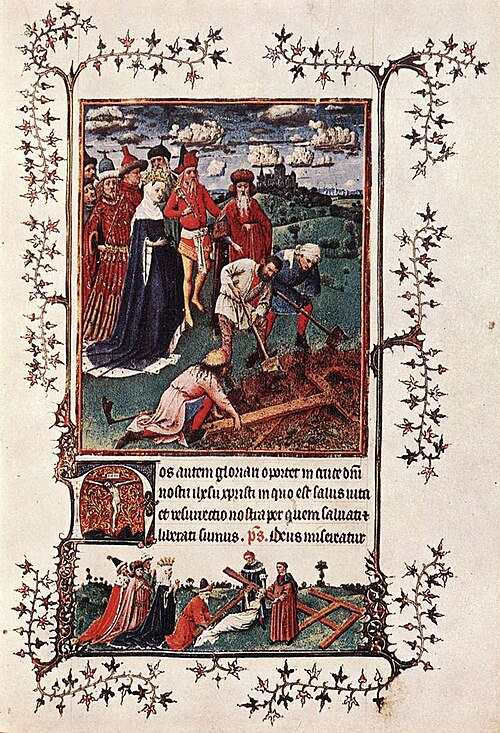 Nos autem gloriari oportet in cruce dñi
nostri ihesu xpristi in quo est salus uita
et resurrectio nostra per quem saluati ⁊
liberati sumus. p̄s. Deus misereatur